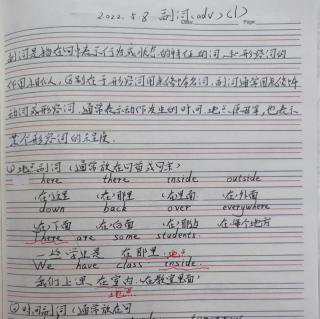 2022.5.8 副词(adv)(1)
副词是指在句中表示行为或状态的特征的词,与形容词的
作用, 区别在于形容词用来修饰名词,副词通常用来修饰
动词或形容词,通常表示动作发生的时间、地点、,也表示
某个形容词的程度.
①地点副词(通常放在句首或句末)
here there inside outside
(在)这里 (在)那里 (在)里面 (在)外面
down back over everywhere
(在)下面 (在)后面 (在)那边 (在)每个地方
There are some students.
一些学生是在那里.地点
We have class inside.
我们上课,在室内.(在教室里面)
地点
②时间副词(通常放在句